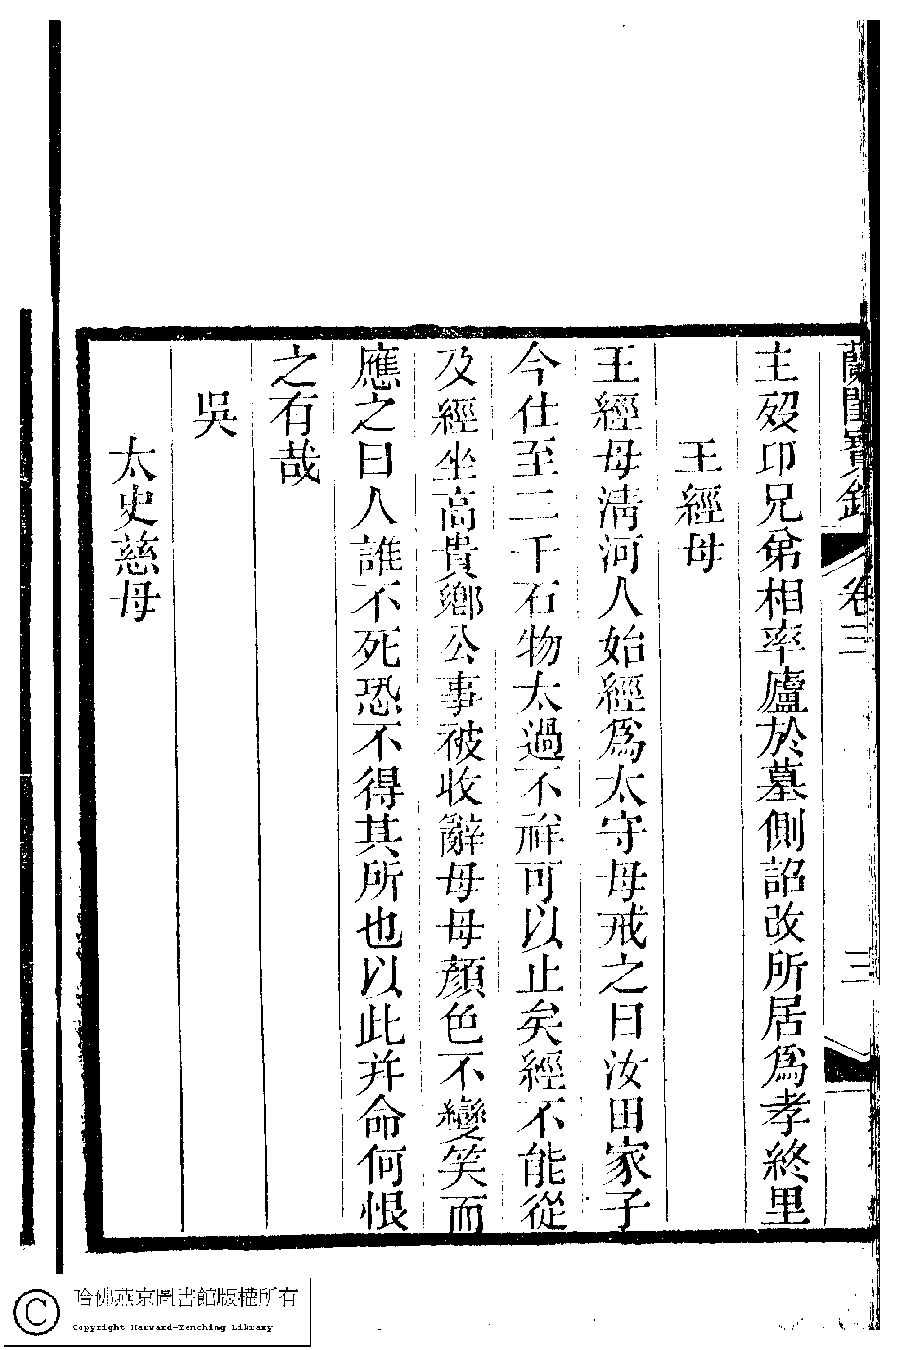 蘭閨寶錄 卷三 三
主歿卬兄弟相率廬於墓側詔改所居爲孝終里
王經母
王經母淸河人始經爲太守母戒之曰汝田家子
今仕至二千石物太過不祥可以止矣經不能從
及經坐高貴鄉公事被收辭母母顏色不變笑而
應之曰人誰不死恐不得其所也以此并命何恨
之有哉
吳
太史慈母
哈佛燕京圖書館版權所有
Copyright Harvard-Yenching Library